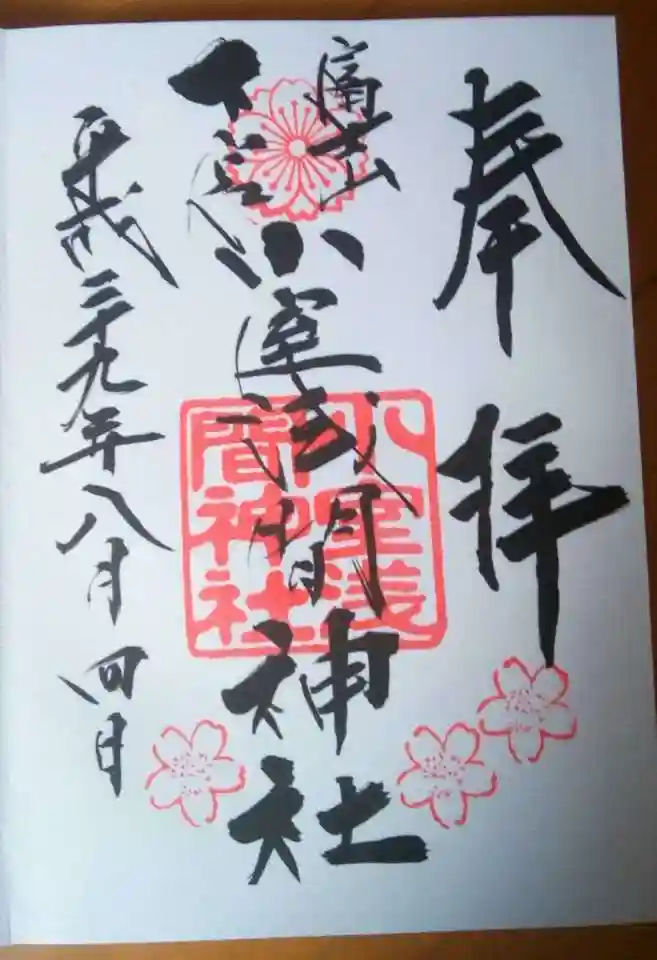 奉拝
富士山
下宮
小室浅間神社
小室浅
間神社
平成二十九年八月四日